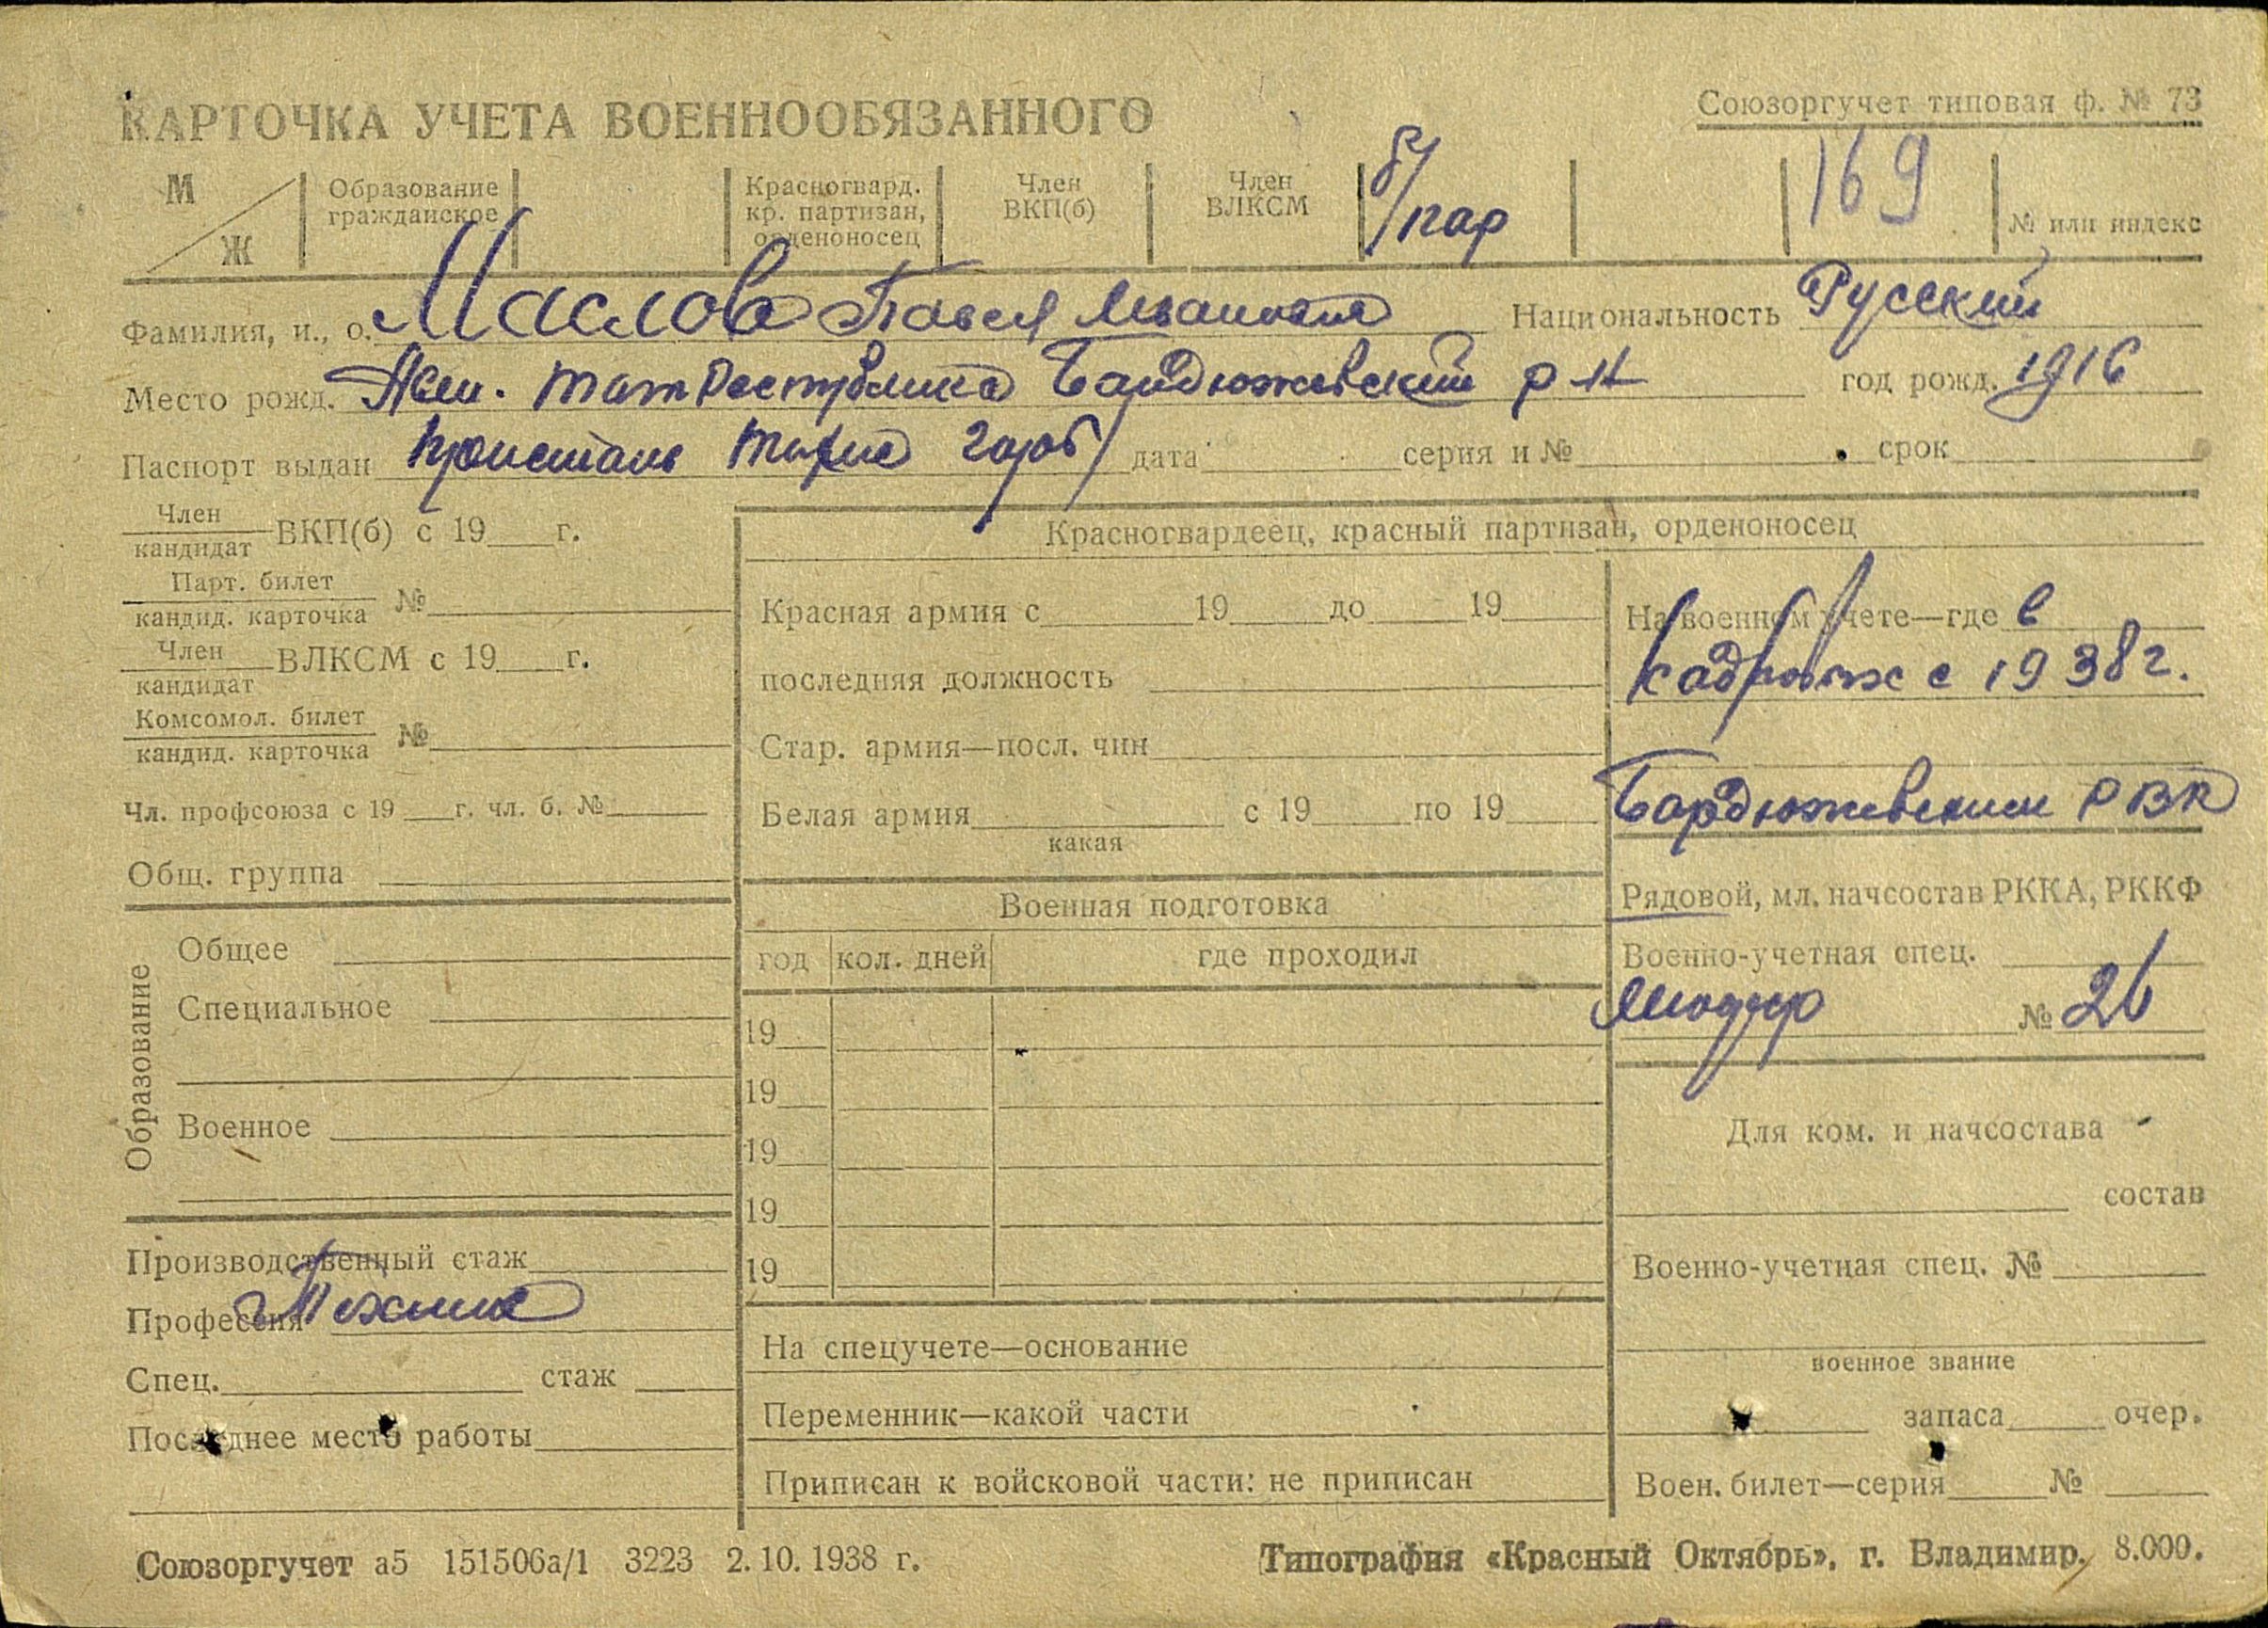 КАРТОЧКА УЧЕТА ВОЕННООБЯЗАННОГО
Союзоргучет типовая ф. № 73
М
Ж
Образование гражданское
Красногвард. кр. партизан, орденоносец
Член ВКП(б)
Член ВЛКСМ
б/пар
169
№ или индекс
Фамилия, и., о. Маслов Павел Иванович
Национальность Русский
Место рожд. ТатРеспублика Бондюжский р-н
год рожд. 1916
Паспорт выдан
дата серия и № срок
Член кандидат ВКП(б) с 19 г.
Парт. билет кандид. карточка №
Член кандидат ВЛКСМ с 19 г.
Комсомол. билет кандид. карточка №
Чл. профсоюза с 19 г. чл. б. №
Общ. группа
Образование
Общее
Специальное
Военное
Производственный стаж
Професеия
Спец. стаж
Последнее место работы
Красногвардеец, красный партизан, орденоносец
Красная армия с 19 до 19
последняя должность
Стар. армия—посл. чин
Белая армия с 19 по 19
какая
Военная подготовка
год кол. дней где проходил
19
19
19
19
19
На спецучете—основание
Переменник—какой части
Приписан к войсковой части: не приписан
На военном учете—где в
с 1938 г.
РВК
Рядовой, мл. начсостав РККА, РККФ
Военно-учетная спец.
№ 26
Для ком. и начсостава
состав
Военно-учетная спец. №
военное звание
запаса очер.
Воен. билет—серия №
Союзоргучет а5 151506а/1 3223 2. 10. 1938 г.
Типография «Красный Октябрь», г. Владимир, 8.000.